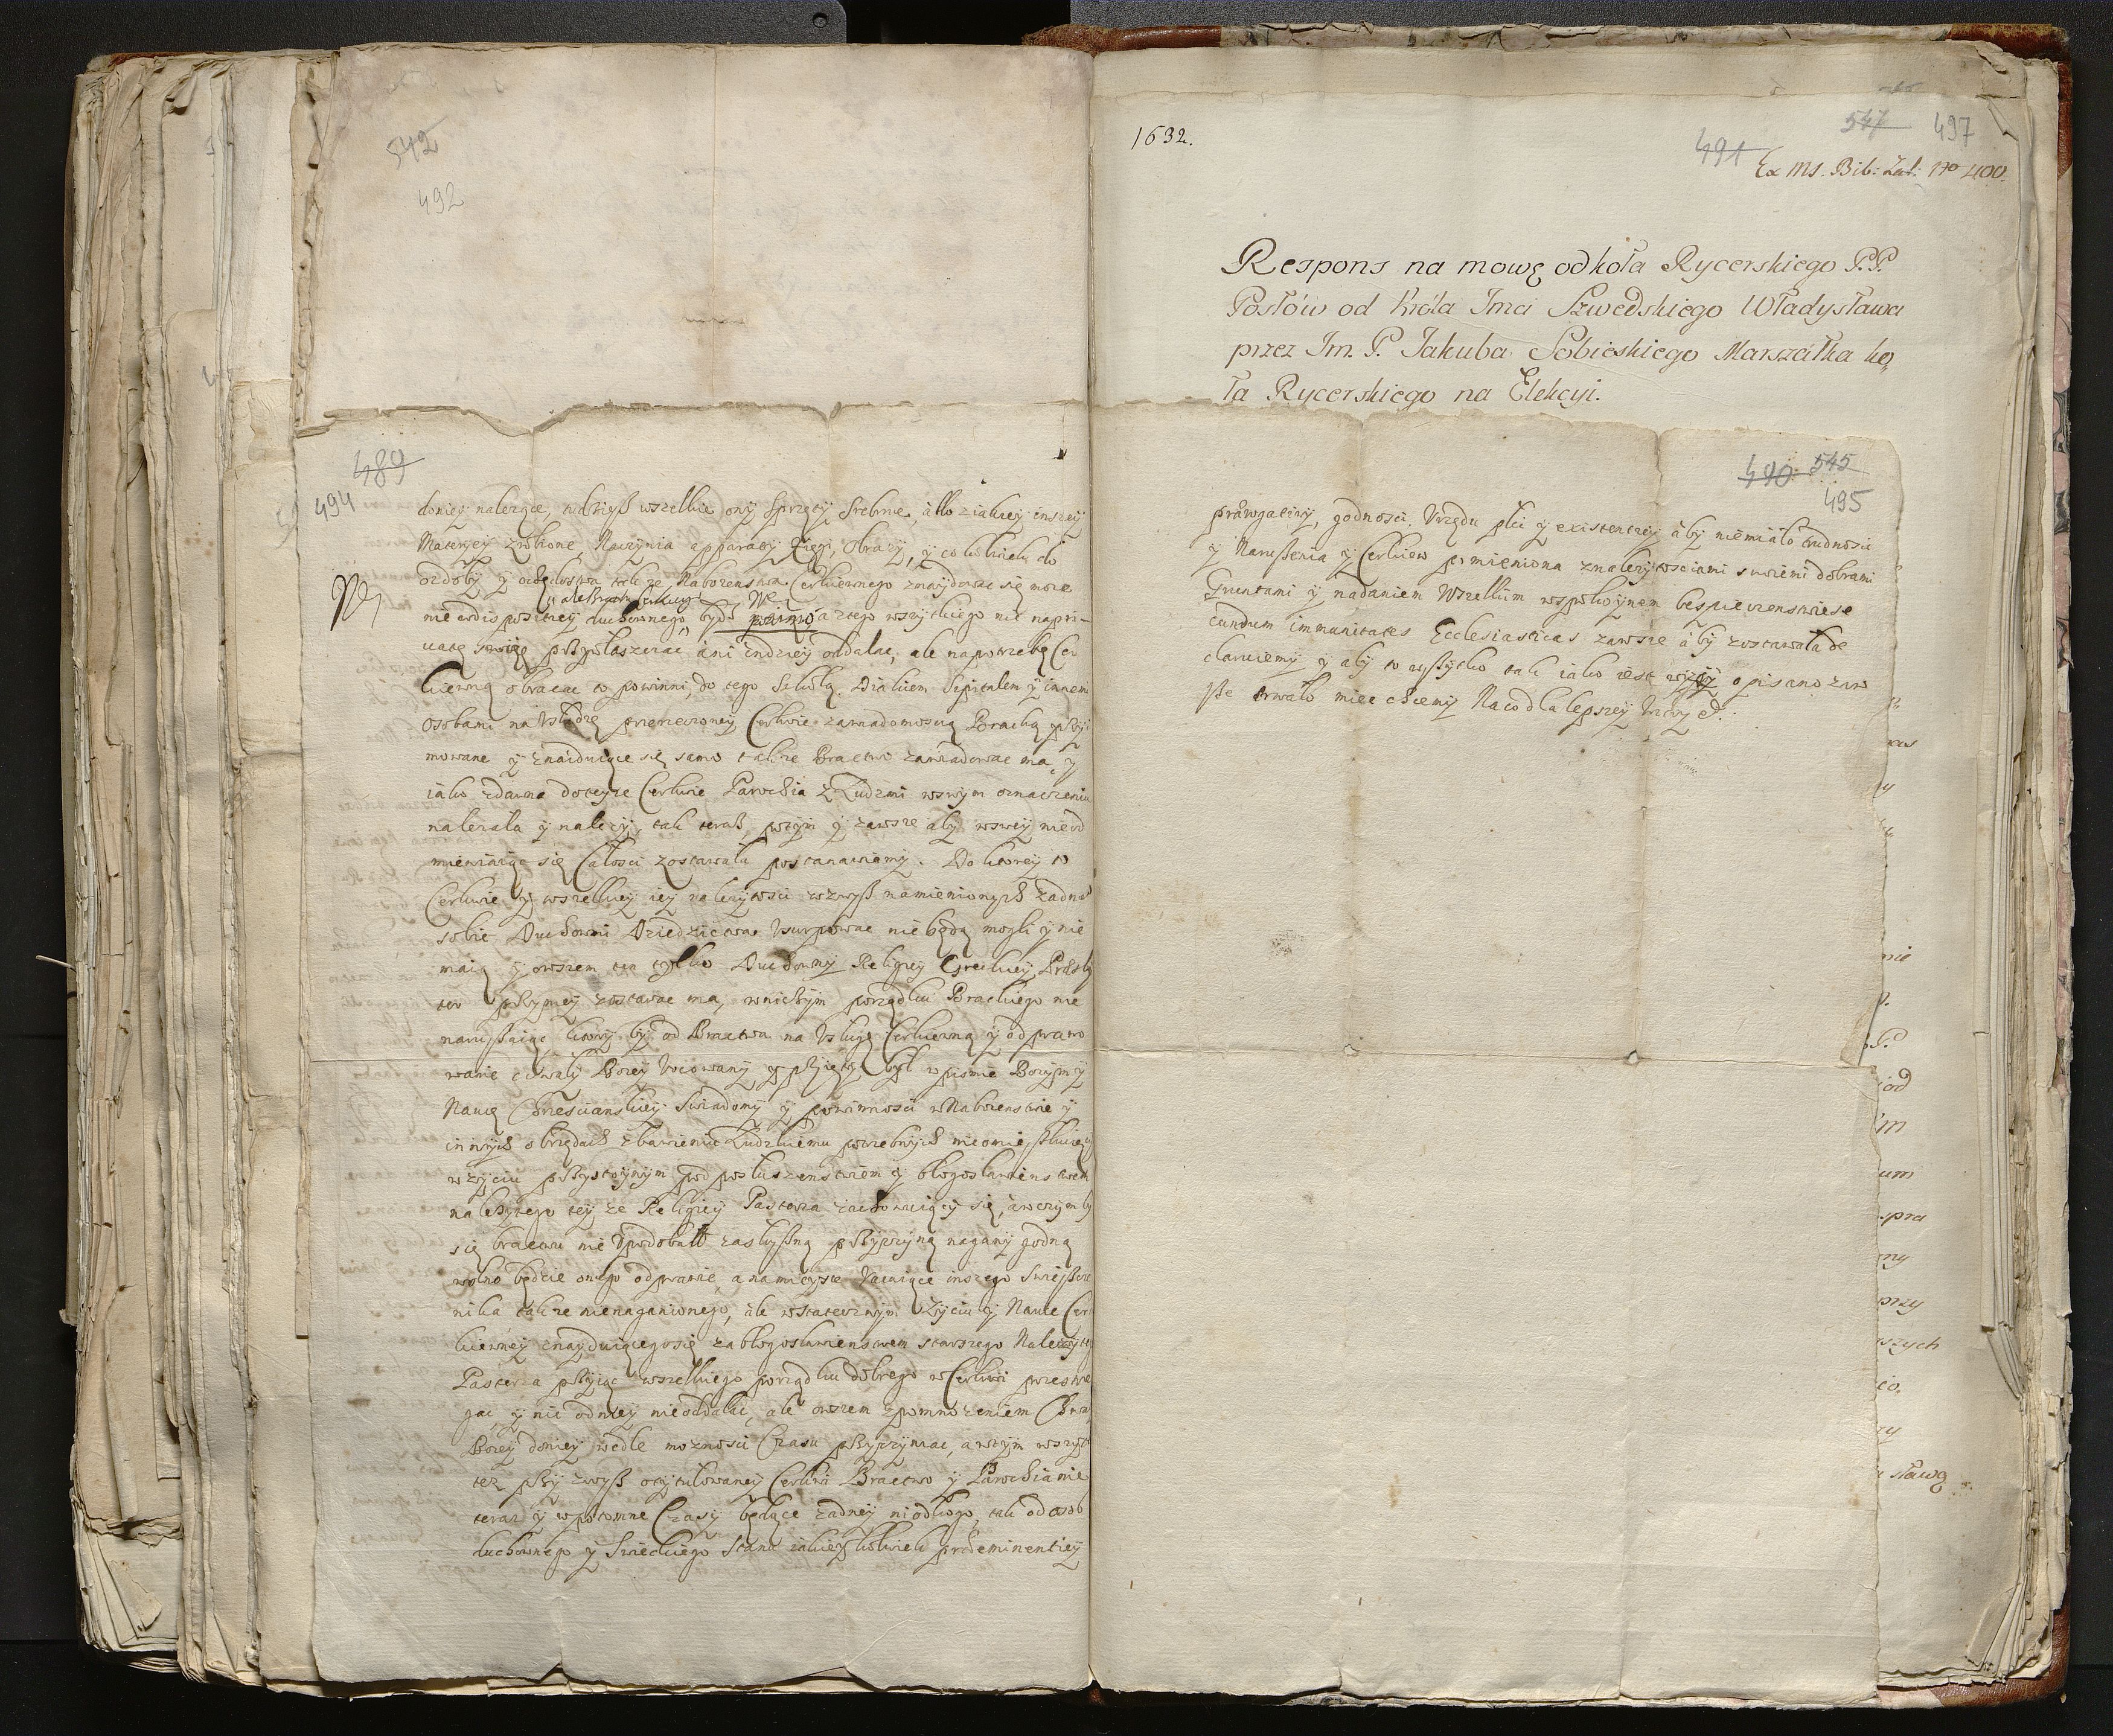 542
492
489
494
doniey należące, tudzież wszelkie ony Sprzęty Srebrne, albo z iakiey inszey
Materyey zrobione, Naczynia apparaty Xięgi, Obrazy, y co kolwiek do
ozdoby y także Nabozenstwa Cerkiewnego znaydować się może
nie w dispositiey duchownego, bydź a z tego wszytkiego nic na pri-
watę swoię przywłaszczać ani indziey oddalać, ale na potrzebę Cer
kiewną obracać to powinni, do tego Szkołą Diakiem Szpitalem y innemi
Osobami na Usługę pomienioney Cerkwie za wiadomoscią Bracką przy
mowane y znaiduiące się samo także Bractwo zawiadować ma, y
iako zdawna do teyże Cerkwie Parochia z Ludzmi w swym oznaczeniu
należała y należy, tak teraz, potym y zawsze aby w swey nieod
mieniaiąc się Całości zostawała postanawiamy. Do ktorey to
Cerkwie y wszelkiey iey należytości wzwyß namienionych żadne
sobie Duchowni Dziedzictwa Usurpować nie będą mogli y nie
maią y owszem ten tylko Duchowny Religiey Greckiey Prezby
ter przy niey zostawać ma, w niczym porządku Brackiego nie
narußaiąc ktory by od Bractwa na Usługę Cerkiewną y odprawo
wanie chwały Bozey Vocowany y przyięty był w pismie Bozym y
Nauce Chrescianskiey Swiadomy y powinności w Nabozenstwie y
innych obrzędach zbawieniu Ludzkiemu potrzebnych nieomießkuiący
w życiu przystoynym pod posłuszenstwem y błogosławienstwem
należytego teyże Religiey Pasterza zachowuiący się, a w czym by
się bractwu nie Upodobał zasłyßną przyczyną nagany godną
wolno będzie onego odprawić, a na mieysce Vacuiące inszego Swießcze
nika także nienaganionego, ale w statecznym życiu y Nauce Cer
kiewney znayduiącego się za błogosławienstwem starszego Należytego
Pasterza przyiąć wszelkiego porządku dobrego w Cerkwi przestrze
gać y nic od niey nieoddalać, ale owszem z pomnożeniem Chwały
Bozey doniey wedle możności Czasu przyczyniać, a w tym wszyt
też przy zwyß otytułowaney Cerkwi Bractwo y Parochianie
teraz y w potomne Czasy będące żadney niodkogo, tak od osob
duchownego y Swieckiego Stanu iakieykolwiek praeminentiey
1632.
491
547
497
Ex Ms. Bib: Zał: No 400.
Respons na mowę od koła Rycerskiego P.P.
Posłów od Króla Jmci Szwedskiego Władysława
przez Jm. P. Jakuba Sobieskiego Marszałka ko,,
ła Rycerskiego na Elekcyi.
490 545
495
prærogatiwy, godności, Vrzędu płci y existentiey aby niemiało trudności
y Narußenia y Cerkiew pomieniona z należytościami swiemi dobrami
Gruntami y nadaniem Wszelkim w spokoynem bespieczenstwie se
cundum immunitates Ecclesiasticas zawsze aby zostawała de
claruiemy y aby to wßytko tak iako iest wyzy opisano zaw
sze trwało mieć chcemy Na co dla lepszey wiary &.